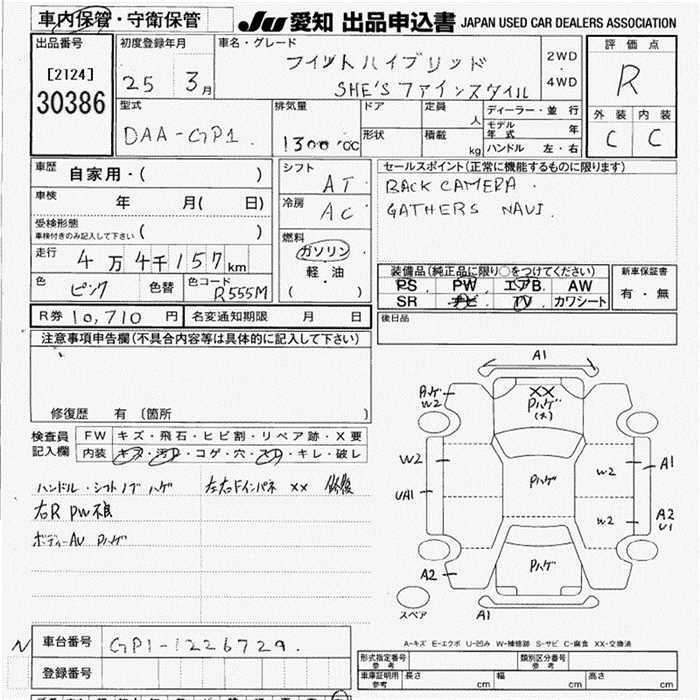 車内保管・守衛保管
JU 愛知 出品申込書 JAPAN USED CAR DEALERS ASSOCIATION
出品番号
[2124]
30386
初度登録年月
25 3月
車名・グレード
フィットハイブリッド
SHE'S ファインスタイル
2WD
・
4WD
評価点
R
外装 内装
C C
型式
DAA-GP1
排気量
1300cc
ドア
形状
定員
人
積載
kg
ディーラー・並行
モデル年式 年
ハンドル 左・右
車歴
自家用・( )
車検
年 月( 日)
受検形態
車検付きのみ記入して下さい ( )
走行
4万4千157km
色
ピンク
色替
色コード
R555M
シフト
AT
冷房
AC
燃料
ガソリン
・
軽油
( )
セールスポイント(正常に機能するものに限ります)
BACK CAMERA.
GATHERS NAVI.
装備品(純正品に限り○をつけてください)
PS PW エアB. AW
SR ナビ TV カワシート
新車保証書
有・無
R券 10,710 円
名変通知期限 月 日
後日品
注意事項申告欄(不具合内容等は具体的に記入して下さい)
修復歴 有 (箇所 )
検査員記入欄
FW キズ・飛石・ヒビ割・リペア跡・X要
内装 キズ・汚レ・コゲ・穴・スレ・キレ・破レ
ハンドル・シフトノブ ハゲ
左右Fインパネ XX 修復
右R PW不良
ボディーAU Pハゲ
A1
Aハゲ
W2
XX
Pハゲ
(大)
W2
UA1
Pハゲ
W2
A1
W2
A2
U1
A2
Pハゲ
A1
スペア
A-キズ E-エクボ U-凹み W-補修跡 S-サビ C-腐食 XX-交換済
N
車台番号
GP1-1226729.
登録番号
形式指定番号
参考
類別区分番号
参考
車庫証明用
参考
長さ cm 幅 cm 高さ cm